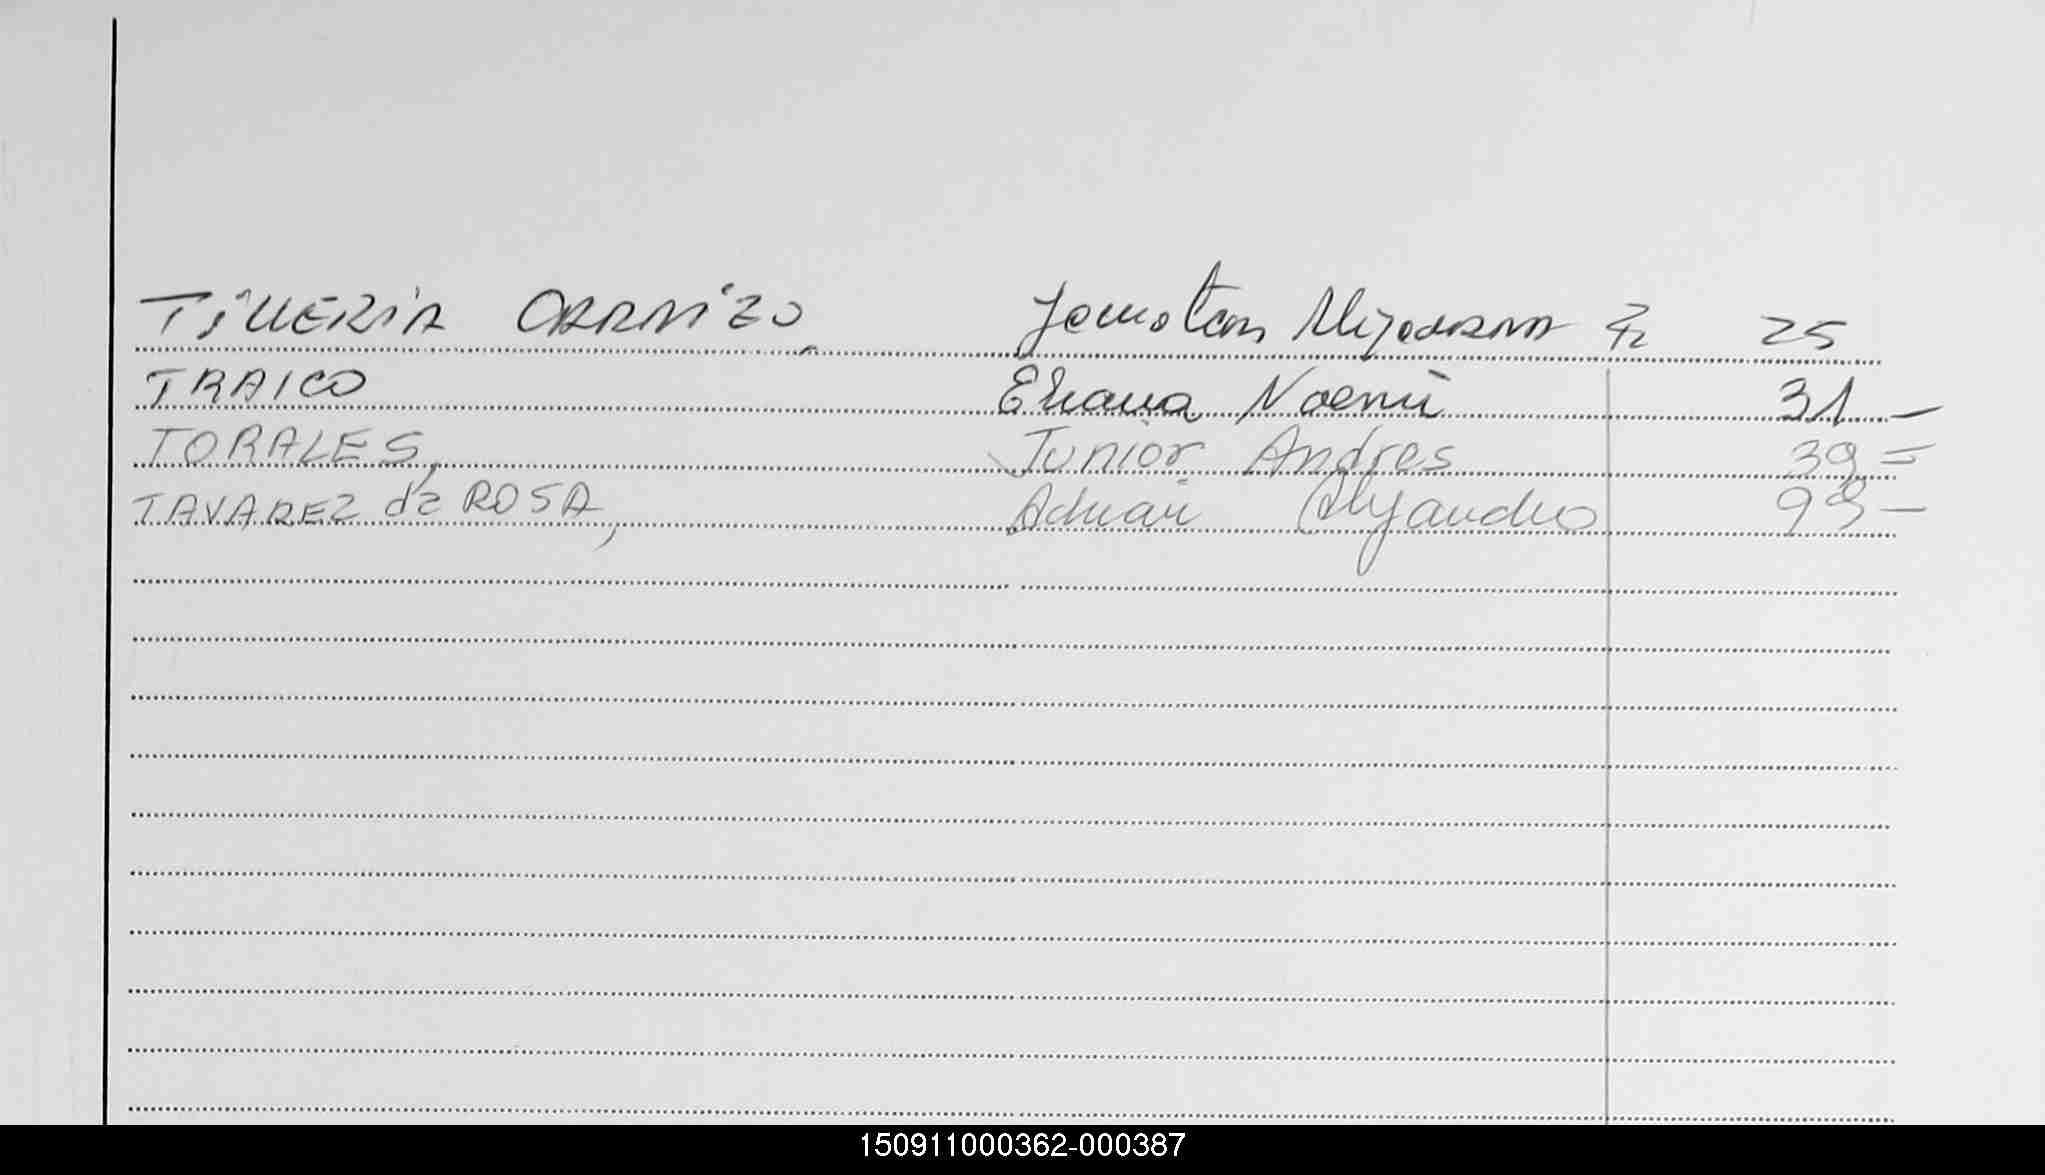 TillERiA CARRizo, Jonatan Alejandro 25
TRAICO Eliana Noemi 31 -
TORALES, Junior Andres 39 =
TAVAREZ de ROSA, Adrian Alejandro 99 -
150911000362-000387